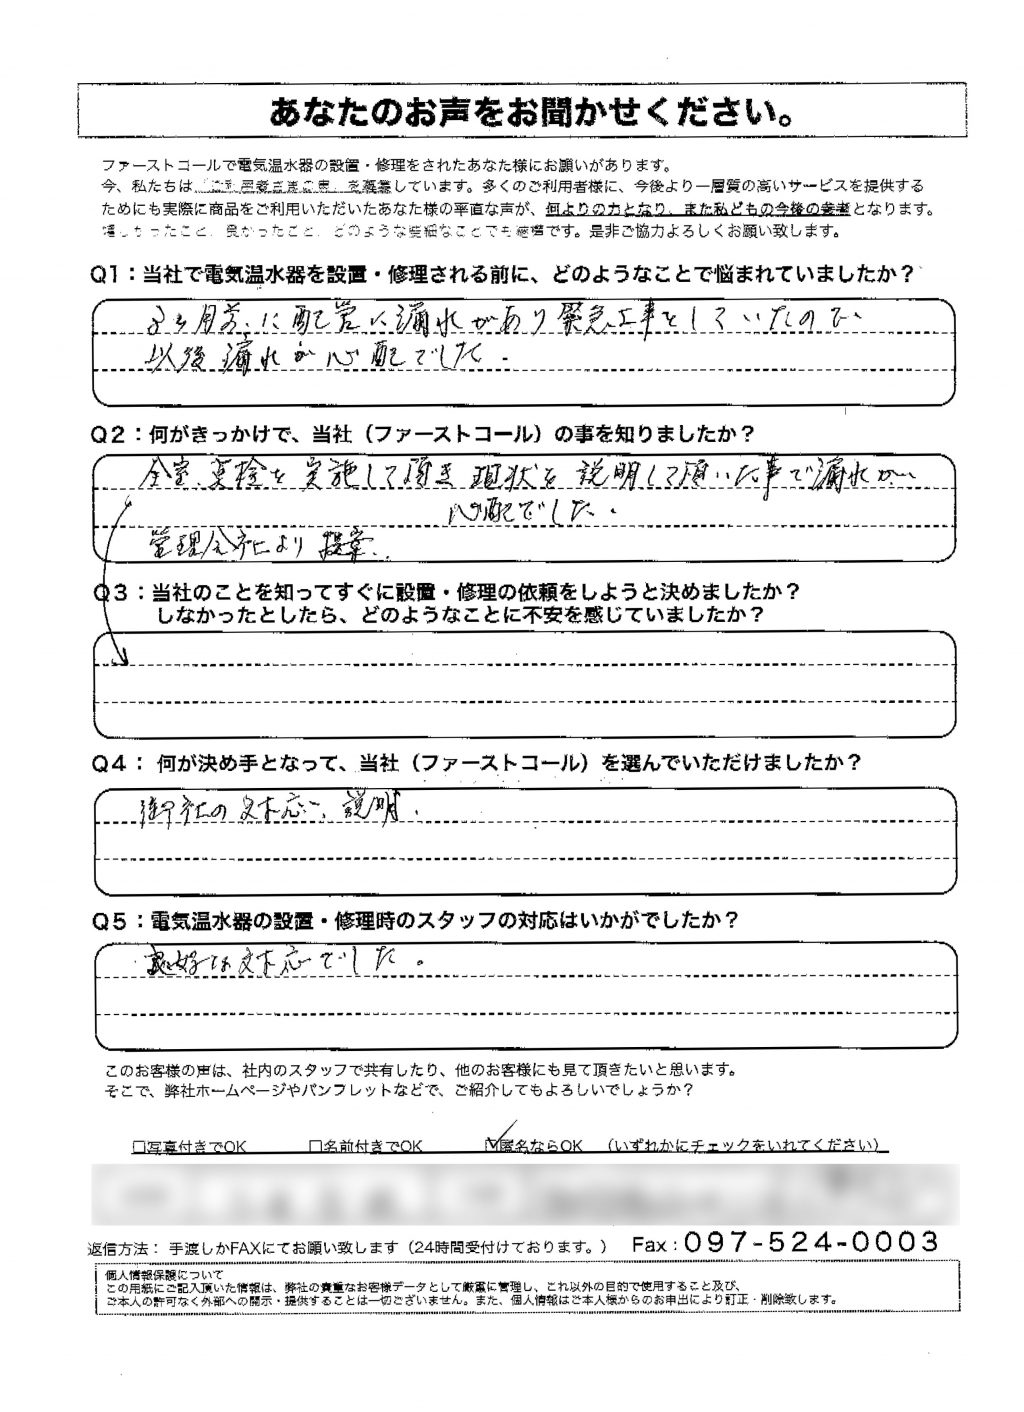 あなたのお声をお聞かせください。
ファーストコールで電気温水器の設置・修理をされたあなた様にお願いがあります。
今、私たちは「ご利用者さまの声」を募集しています。多くのご利用者様に、今後より一層質の高いサービスを提供する
ためにも実際に商品をご利用いただいたあなた様の率直な声が、何よりの力となり、また私どもの今後の参考となります。
嬉しかったこと、良かったこと、どのような些細なことでも結構です。是非ご協力よろしくお願い致します。
Q1：当社で電気温水器を設置・修理される前に、どのようなことで悩まれていましたか？
ヶ月前に配管に漏れがあり緊急工事をしていたので
以後漏れが心配でした.
Q2：何がきっかけで、当社（ファーストコール）の事を知りましたか？
全室点検を実施して頂き現状を説明して頂いた事で漏れが
心配でした.
管理会社により提案.
Q3：当社のことを知ってすぐに設置・修理の依頼をしようと決めましたか？
しなかったとしたら、どのようなことに不安を感じていましたか？
Q4： 何が決め手となって、当社（ファーストコール）を選んでいただけましたか？
御社の対応、説明.
Q5：電気温水器の設置・修理時のスタッフの対応はいかがでしたか？
良好な対応でした。
このお客様の声は、社内のスタッフで共有したり、他のお客様にも見て頂きたいと思います。
そこで、弊社ホームページやパンフレットなどで、ご紹介してもよろしいでしょうか？
□写真付きでOK □名前付きでOK ☑匿名ならOK （いずれかにチェックをいれてください）
返信方法： 手渡しかFAXにてお願い致します（24時間受付けております。） Fax：097-524-0003
個人情報保護について
この用紙にご記入頂いた情報は、弊社の貴重なお客様データとして厳重に管理し、これ以外の目的で使用すること及び、
ご本人の許可なく外部への開示・提供することは一切ございません。また、個人情報はご本人様からのお申出により訂正・削除致します。